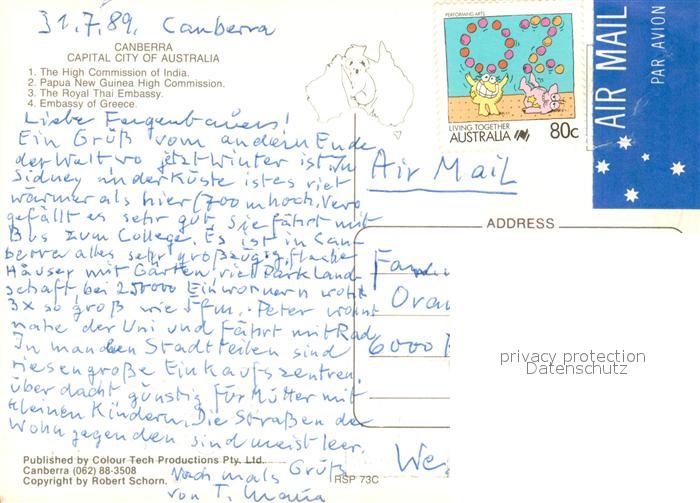 31.7.89. Canberra
CANBERRA
CAPITAL CITY OF AUSTRALIA
1. The High Commission of India.
2. Papua New Guinea High Commission.
3. The Royal Thai Embassy.
4. Embassy of Greece.
Liebe
Ein Gruß vom andern Ende
der Welt wo jetzt Winter ist. In
Sidney an der Küste ist es viel
wärmer als hier (700 m hoch. Vero
gefällt es sehr gut sie fährt mit
Bus zum College. Es ist in Can-
berra alles sehr großzügig, flache
Häuser mit Gärten viel Parkland-
schaft bei 250000 Einwonern wohl
3x so groß wie Ffm. Peter wohnt
nahe der Uni und fährt mit Rad
In manchen Stadtteilen sind
riesengroße Einkaufszentren,
überdacht günstig für Mütter mit
kleinen Kindern. Die Straßen der
Wohngegenden sind meist leer.
Nochmals Grüß
von T. Maria
Published by Colour Tech Productions Pty. Ltd.
Canberra (062) 88-3508
Copyright by Robert Schorn.
RSP 73C
PERFORMING ARTS
OZ
LIVING TOGETHER
AUSTRALIA 80c
AIR MAIL
PAR AVION
Air Mail
ADDRESS
Fam
Oran
6000
We
privacy protection
Datenschutz